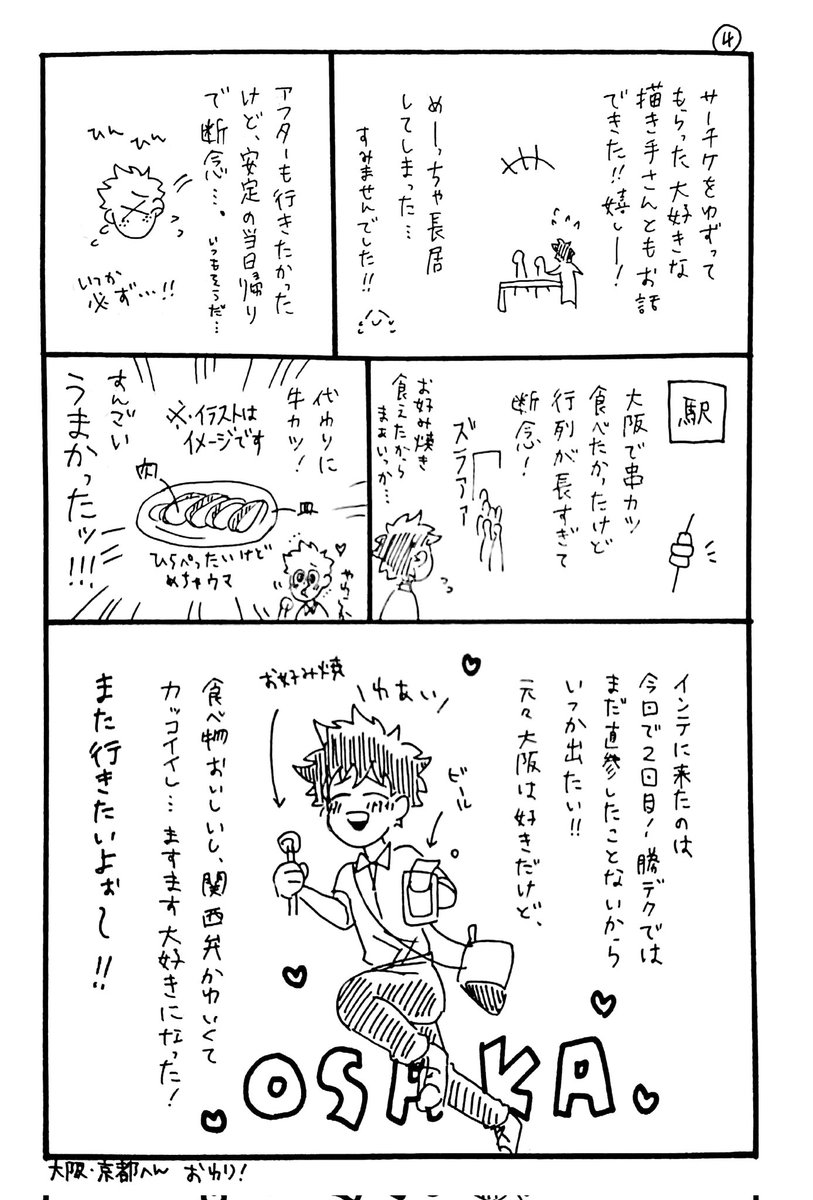 ④
サーチケをゆずって
もらった大好きな
描き手さんともお話
できた!!嬉しー!
めーっちゃ長居
してしまった…
すみませんでした!!
アフターも行きたかった
けど、安定の当日帰り
で断念…。
いつもそうだ…
ひん ひん
いつか
必ず…!!
駅
大阪で串カツ
食べたかったけど
行列が長すぎて
断念!
ズラァァ
お好み焼き
食えたから
まぁいっか…
代わりに
牛カツ!
※イラストは
イメージです
肉
皿
ひらぺったいけど
めちゃウマ
すんごい
うまかったッ!!!
インテに来たのは
今回で2回目!勝デクでは
まだ直参したことないから
いつか出たい!!
元々大阪は好きだけど、
わあい
ビール
お好み焼
食べ物おいしいし、関西弁かわいくて
カッコイイし…ますます大好きになった!
また行きたいよぉ〜!!
OSAKA
大阪・京都へん おわり!